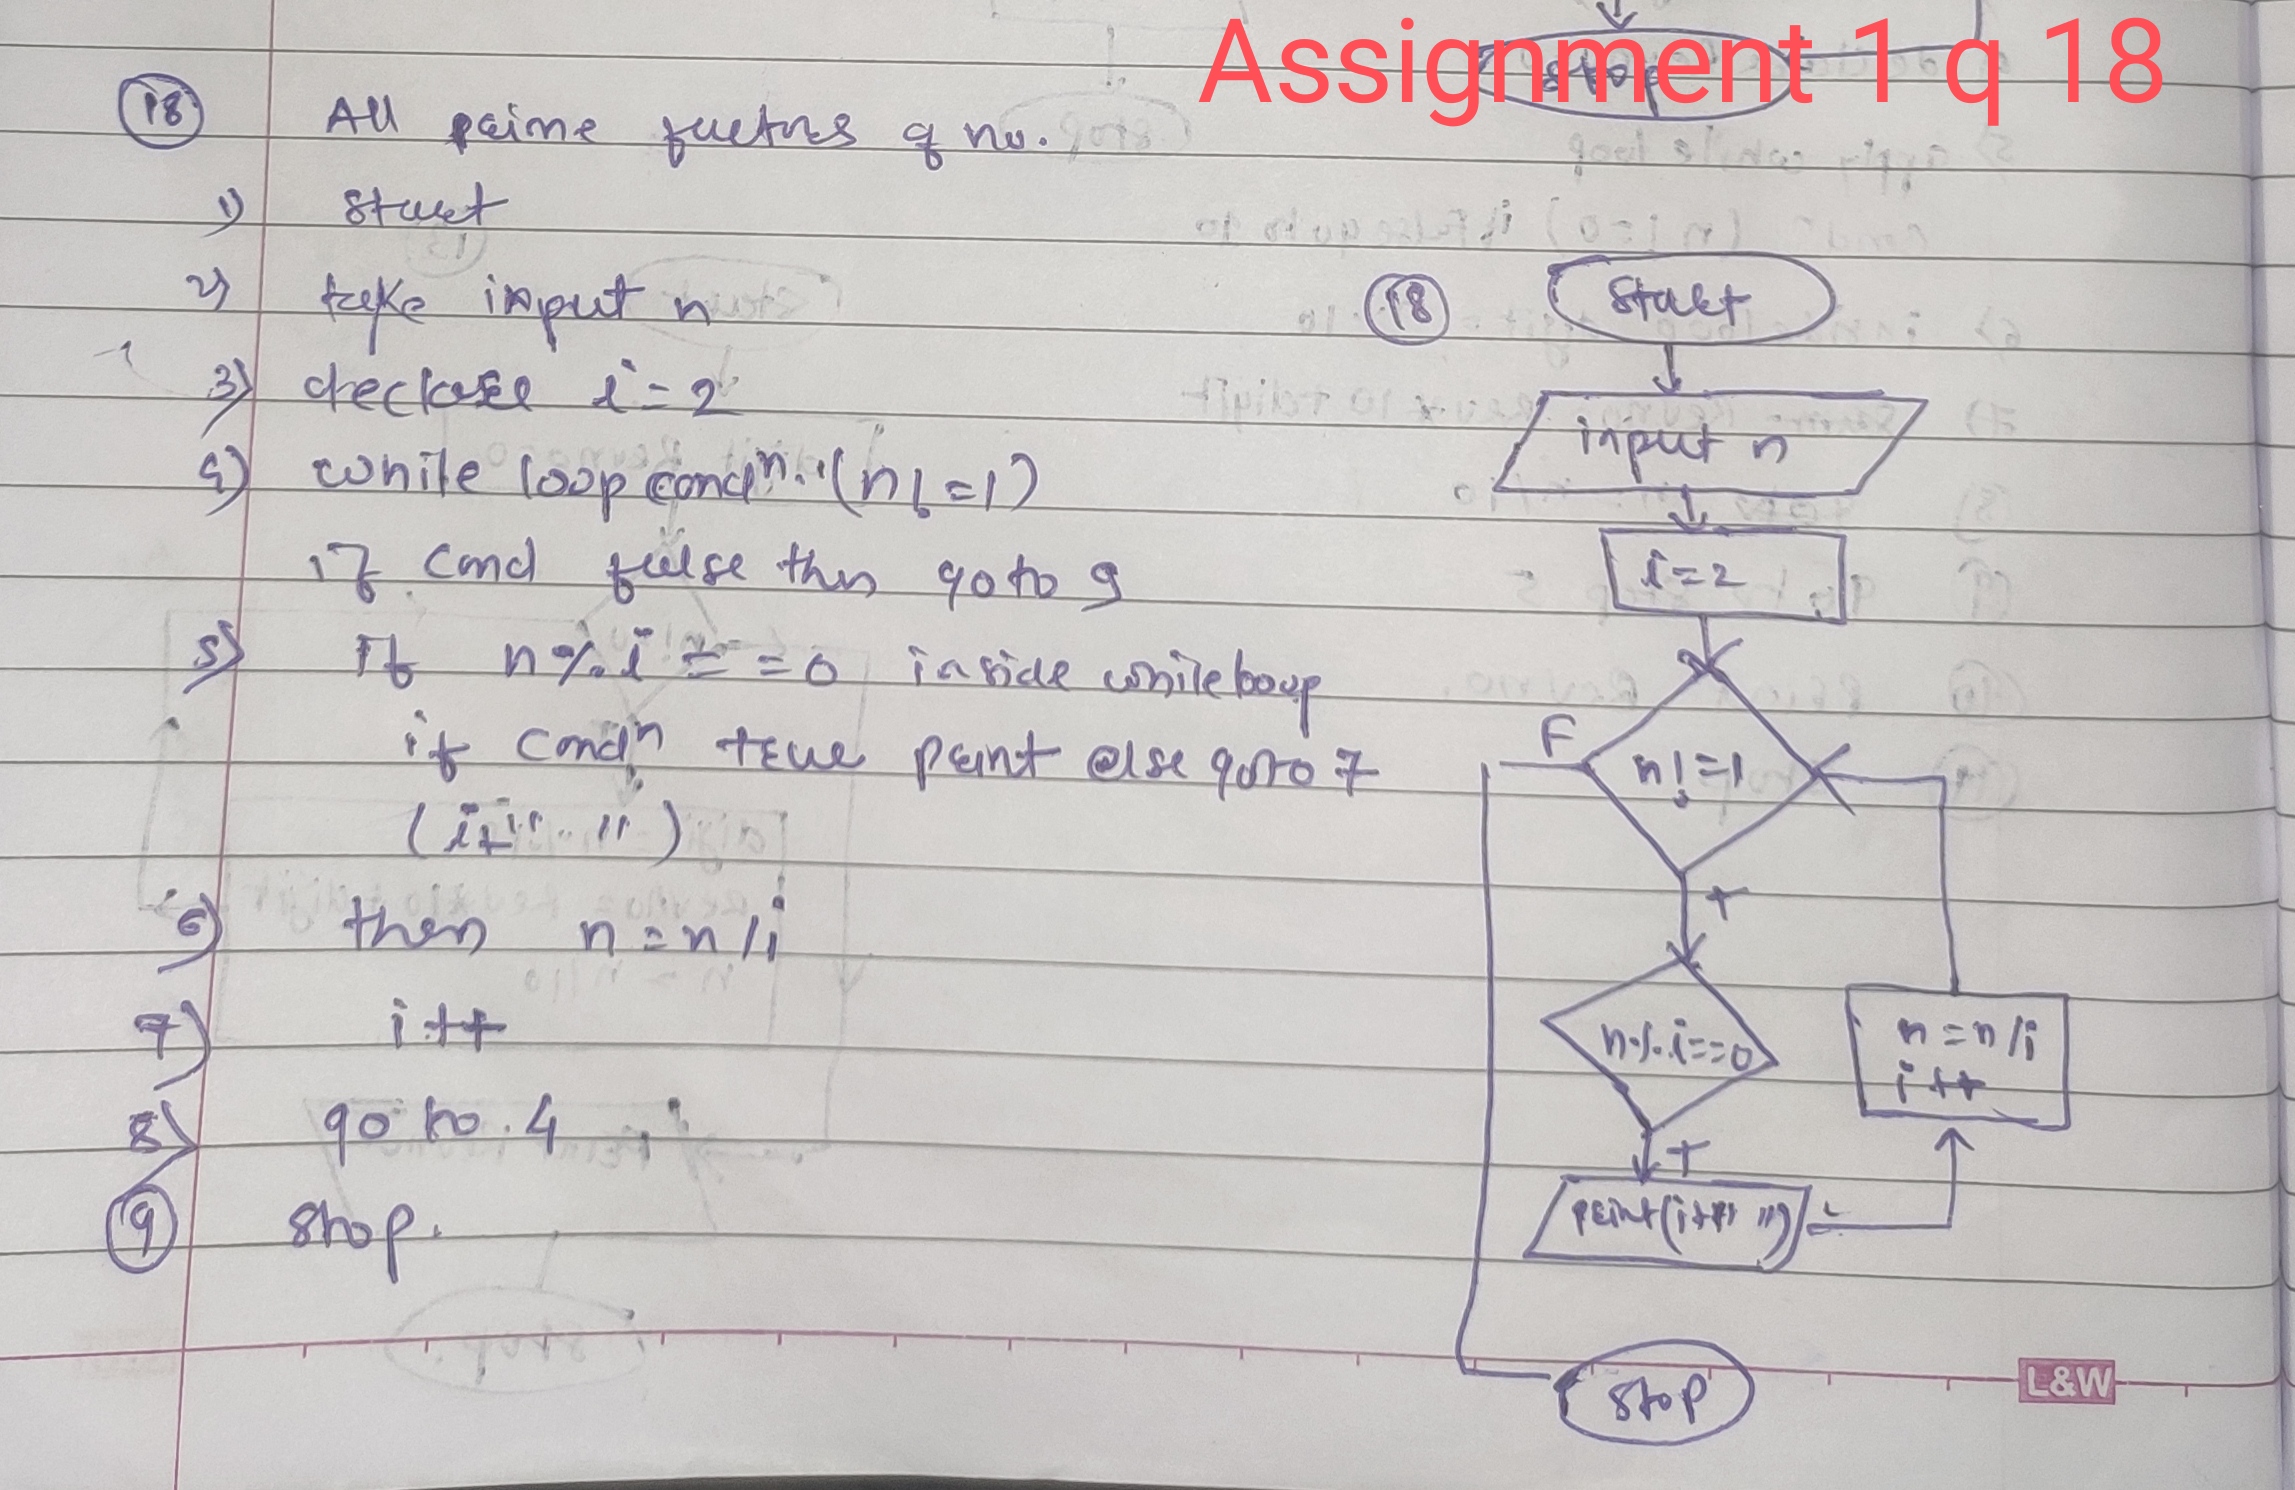 Assignment 1 q 18
stop
18 All prime factors of no.
1) start
2) take input n
3) declare i=2
4) while loop condn. (n!=1)
if cond false then go to 9
5) If n%i == 0 inside while loop
if condn true print else goto 7
(i+" ")
6) then n=n/i
7) i++
8) go to 4
9 stop.
18 start
input n
i=2
F n!=1
T
n%i==0
n=n/i
i++
T
print(i+" ")
stop
L&W